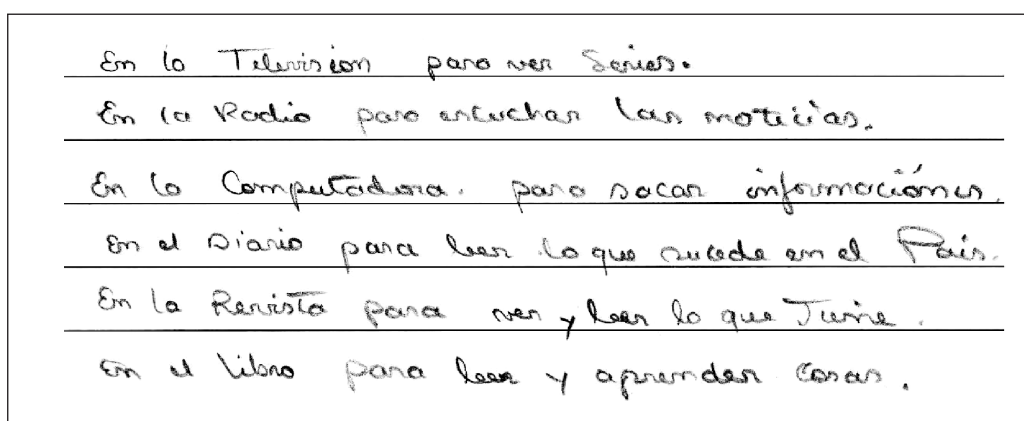 En la Television para ver Series.
En la Radio para escuchar las noticias.
En la Computadora. para sacar informaciónes.
En el Diario para leer lo que sucede en el Pais.
En la Revista para ver y leer lo que Tiene.
En el libro para leer y aprender cosas.